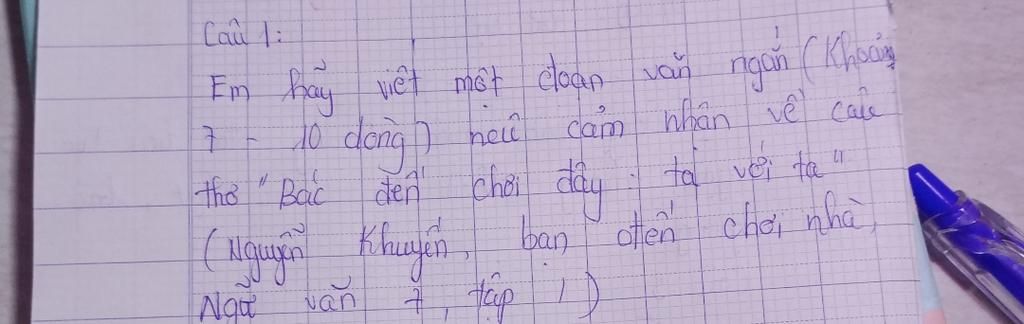 Câu 1:
Em hãy viết một đoạn văn ngắn (Khoảng
7 - 10 dòng) nêu cảm nhận về câu
thơ "Bác đến chơi đây ta với ta"
(Nguyễn Khuyến, bạn đến chơi nhà,
Ngữ văn 7, tập 1)